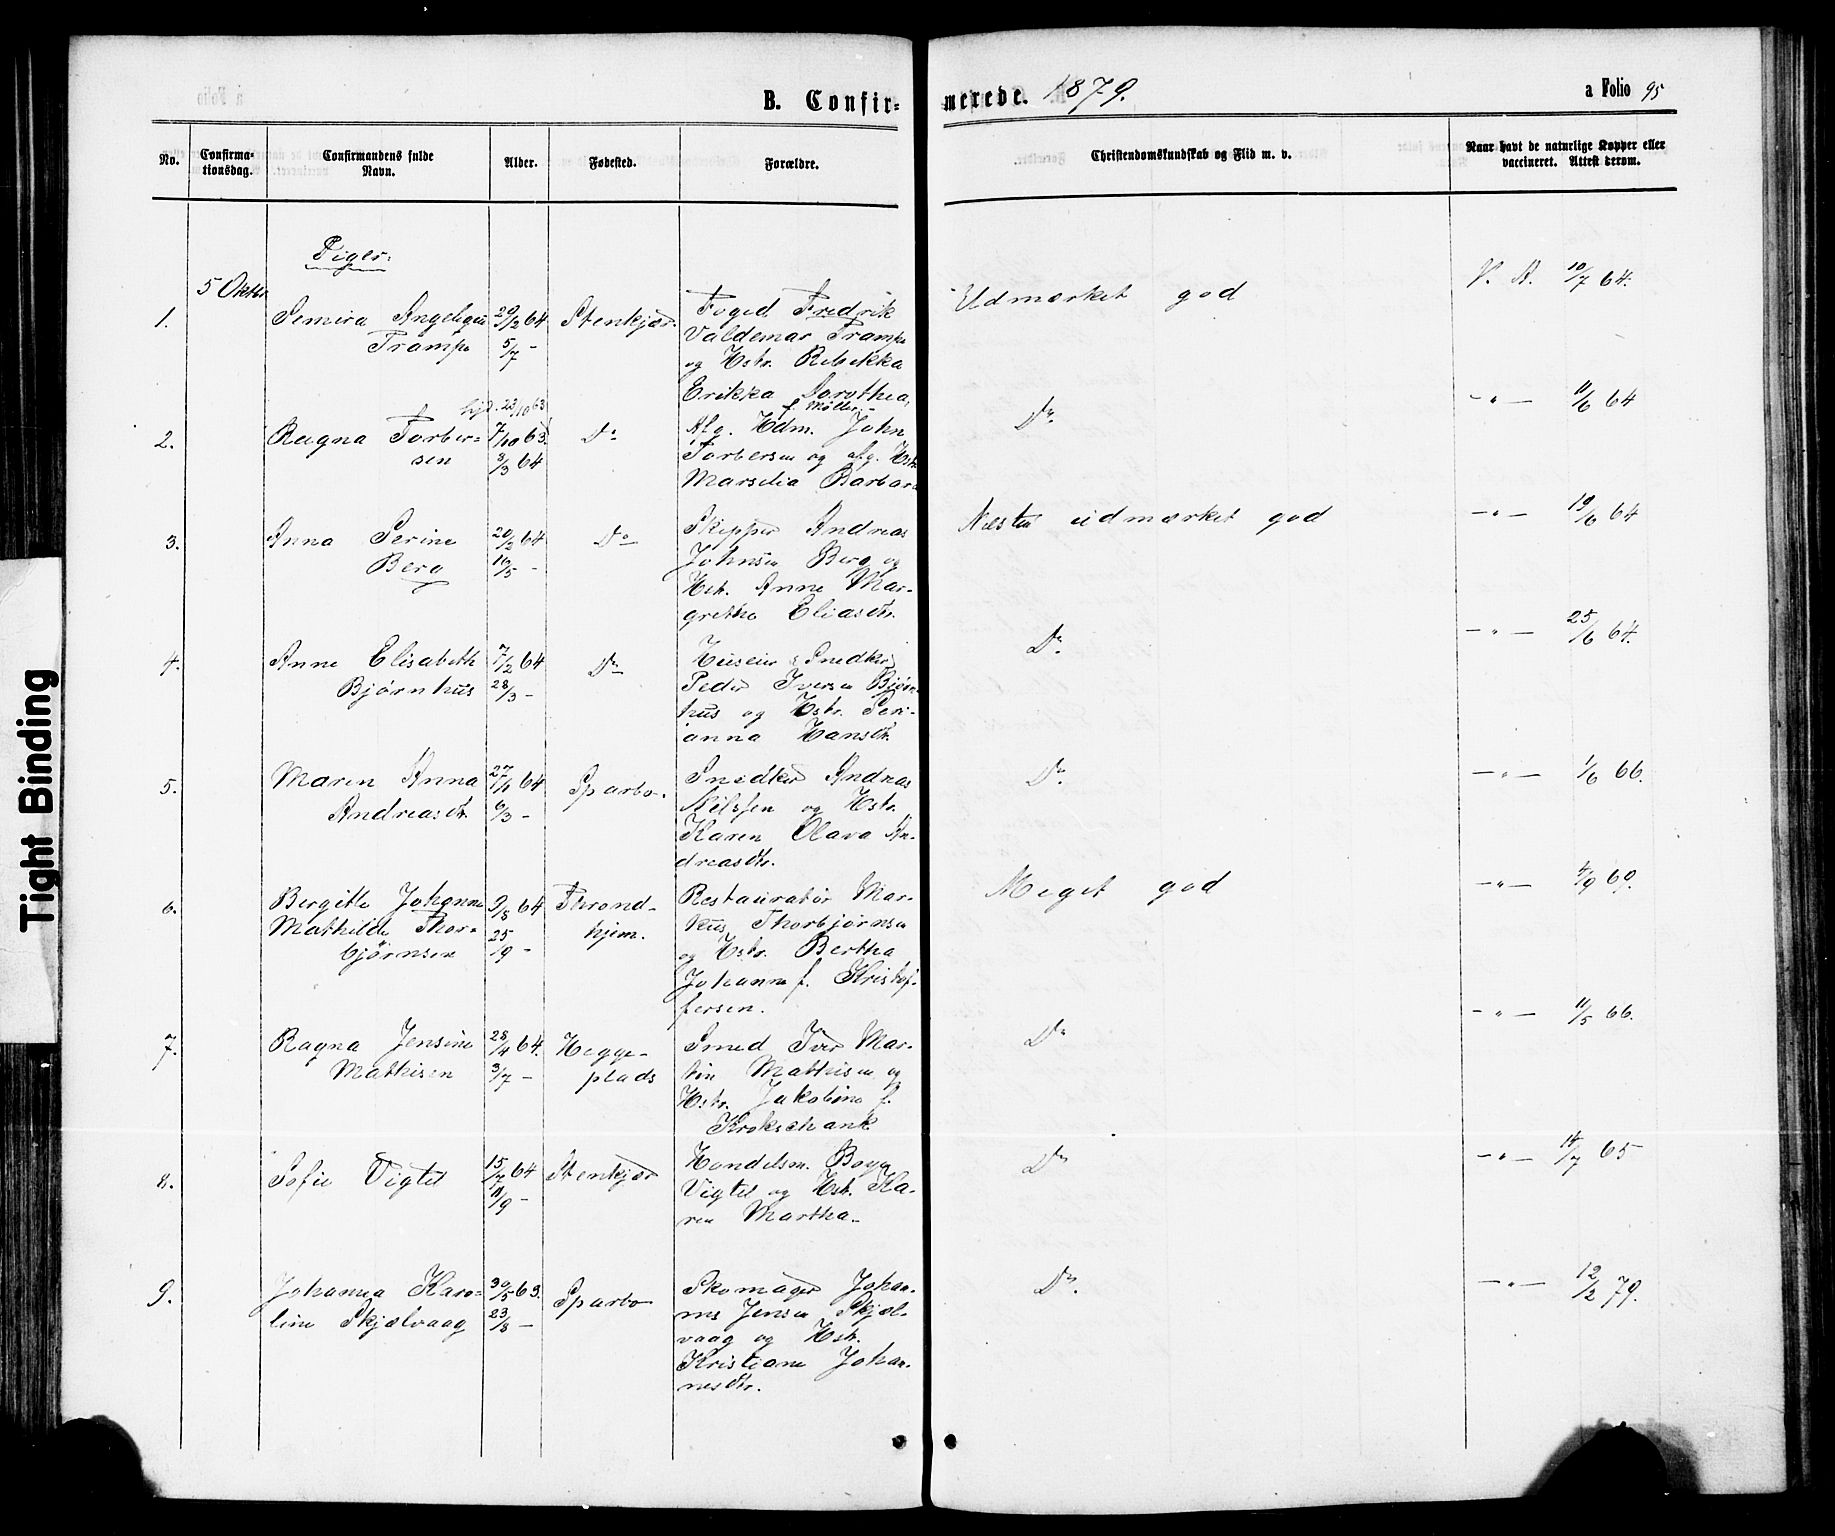 B. Confirmerede. 1879.
a Folio 95
No.
Confirmationsdag.
Confirmandens fulde Navn.
Alder.
Fødested.
Forældre.
Christendomskundskab og Flid m. v.
Naar havt de naturlige Kopper eller vaccineret. Attest derom.
Piger.
5 Oktbr
1.
Semira Angeliqu
Trampe
29/2 64
5/7 -
Stenkjær.
Foged Fredrik
Valdemar Trampe
og Hstr. Rebekka
Erikka Dorothea,
f. Møller
Udmærket god
V. A. 10/7 64.
2.
Ragna Torber-
sen
23/10 63
7/10 63.
3/3 64
Do
Afg. Hdm. John
Torbersen og afg. Hstr
Marselia Barbara
Do
-"- 11/6 64
3.
Anna Serine
Berg
20/2 64
16/5 -
Do
Skipper Andreas
Johnsen Berg og
Hstr. Anne Mar-
grethe Eliasdtr.
Næsten udmærket god
-"- 10/6 64
4.
Anne Elisabeth
Bjørnhus
7/2 64
28/3 -
Do
Huseier & Snedker
Peder Iversen Bjørn-
hus og Hstr. Peri-
anna Hansdtr.
Do
-"- 25/6 64.
5.
Maren Anna
Andreasdtr.
27/1 64
6/3 -
Sparbo.
Snedker Andreas
Nilssen og Hstr.
Karen Olava An-
dreasdtr.
Do
-"- 1/6 66.
6.
Bergitte Johanne
Mathilde Thor-
bjørnsen
9/8 64
25/9 -
Throndhjem.
Restauratør Mar-
kus Thorbjørnsen
og Hstr. Bertha
Johanne f. Kristof-
fersen.
Meget god
-"- 4/9 69.
7.
Ragna Jensine
Mathisen
28/4 64.
3/7 -
Hegge-
plads
Smed Iver Mar-
tin Mathisen og
Hstr. Jakobine f.
Krokschank
Do
-"- 11/5 66.
8.
Sofie Vigtel
15/7 64
11/9 -
Stenkjær
Handelsm. Boye
Vigtel og Hstr. Ka-
ren Martha.
Do
-"- 14/7 65
9.
Johanna Karo-
line Skjelvaag
30/5 63.
23/8 -
Sparbo
Skomager Johan-
nes Jensen Skjel-
vaag og Hstr.
Kristiane Johan-
nesdtr.
Do
-"- 12/2 79.
Tight Binding